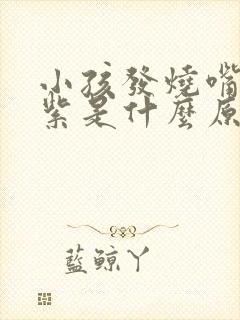 小孩發燒嘴
紫是什麼原
藍鯨丫